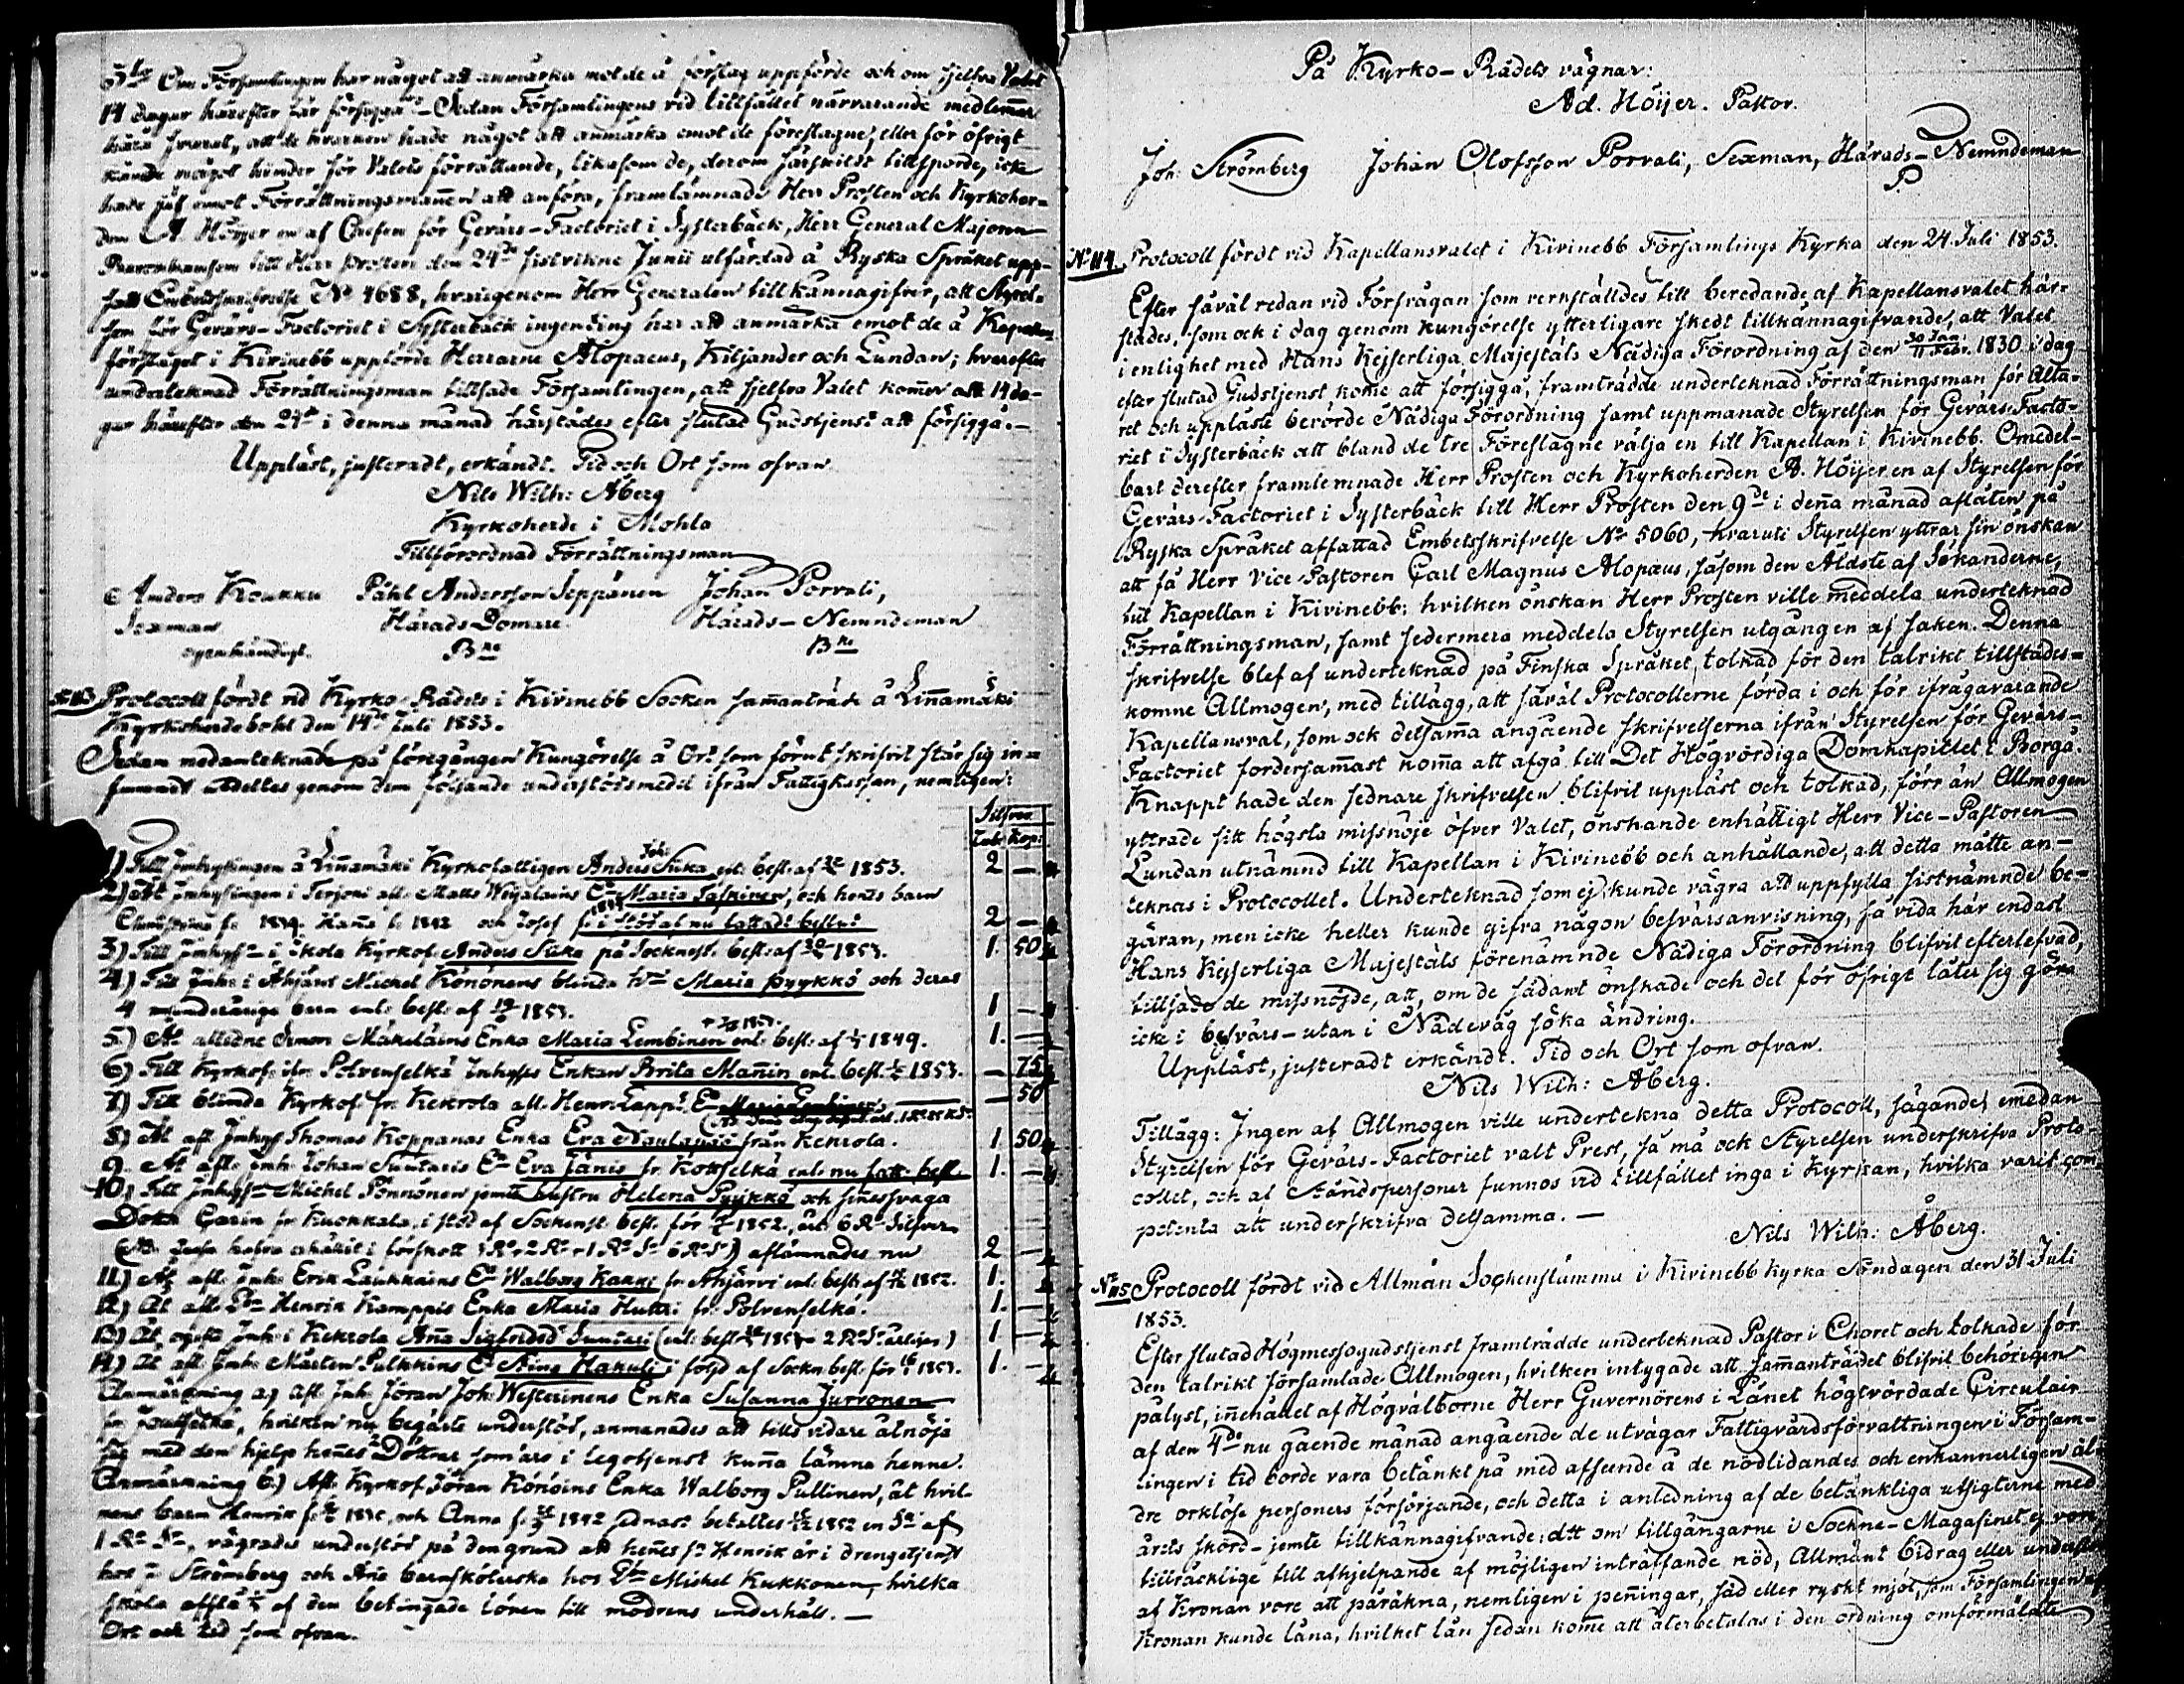 Om Församlingen har något att anmärka mot de å förslag uppförde och om sjelfva Valet
14 dagar härefter får försiggå. Sedan Församlingens vid tillfället närvarande medlem̄ar
svarat, att de hvarken hade något att anmärka emot de föreslagne, eller för öfrigt
kände något hinder för Valets förrättande, likasom de, derom särskildt tillsporde, icke
hade jäf emot Förrättningsman̄en att anföra, framlämnade Herr Prosten och Kyrkoher-
den A. Höijer en af Chefen för Gevärs-Factoriet i Systerbäck, Herr General Majoren
till Herr Prosten den 24de sistvikne Junii utfärdad å Ryska Språket upp-
satt Embetsskrifvelse No 4688, hvarigenom Herr Generalen tillkännagifver, att Styrel-
sen för Gevärs-Factoriet i Systerbäck ingenting har att anmärka emot de å Kapellans
förslaget i Kivinebb uppförde Herrarne Alopaeus, Kiljander och Lundan; hvarefter
undertecknad Förrättningsman tillsade Församlingen, att sjelfva Valet kom̄er att 14 da-
gar härefter den 24de i denna månad härstädes efter slutad Gudstjenst att försiggå.—
Uppläst, justeradt, erkändt. Tid och Ort som ofvan
Nils Wilh: Åberg
Kyrkoherde i Mohla
Tillförordnad Förrättningsman
Anders Koukku Påhl Andersson Seppänen Johan Porvali,
Sexman Härads-Domare Härads-Nemndeman
egenhändigt. Bne Bne
No 113 Protocoll fördt vid Kyrko-Rådets i Kivinebb Socken sam̄anträde å Lin̄amäki
Kyrkoherdebohl den 14de Juli 1853.
Sedan nedantecknade på föregången Kungörelse å Ort som förut skrifvit står sig in=
funnit utdeltes genom dem följande understödsmedel ifrån Fattigkassan, nemligen:
Silfver
Rub: Kop:
1) Till Inhysingen å Lin̄amäki Kyrkofattigen Anders Joh: Sika enl: besl: af 1853. 2 —
2) åt Inhysingen i Terjoki afl: Matts Weijalains Ea Maria Taskinen, och hen̄es barn
Christina f: 1839. Han̄a f: 1842 och Josef f: i stöd af nu fattadt beslut 2 —
3) Till Inhyss i Skola Kyrkof: Anders Sika på Socknest. besl: af 1853. 1. 50
4) Till Inh: i Ahjärvi Michel Könönens blinda h:u Maria Pyykkö och deras
4 minderåriga barn enl: besl: af 1853. 1 —
5) Åt aflidne Simon Mäkeläins Enka Maria Lembinen enl: besl: af 1849. 1. —
6) Till Kyrkof: ifr: Polvenselkä Inhyses Enkan Brita Man̄in enl: besl: 1853. — 75
7) Till blinda Kyrkof: fr: Kekrola afl: Henr: Lapps Ea — 50
8) Åt afl: Inhys Thomas Koppanas Enka Eva Naulapää från Kekrola. 1 50
9. Åt afl: Inh: Johan Suutaris Ea Eva Jänis fr: Kotoselkä enl: nu fatt: besl. 1. —
10) Till Inhys: Michel Pönnönen jemte hustru Helena Pyykkö och sin̄essvaga
Dotter Carin fr: Kuokkala, i stöd af Sockenst: besl. för 1852, åt 6 R. Silfver
aflämnades nu 2 —
11) Åt afl: Inh: Erik Laukkains Ea Walborg Kakki fr: Ahjärvi enl: besl: af 1852. 1. —
12) Åt afl: Henrik Kamppis Enka Maria Hutri fr: Polvenselkä. 1. —
13) Åt ogifta Inh: i Kekrola An̄a Sigfridsd: Suutari (enl: besl: 1853 2 R. S. årligen) 1 —
14) Åt afl: Inh: Mårten Pulkkins Ea Stina Hakuli i följd af Sockn: besl. för 1853. 1. —
Anmärkning a) afl: Inh: Jöran Joh: Westerinens Enka Susanna Jurvonen
hvilken nu begärte understöd, anmanades att tills vidare åtnöja
sig med den hjelp hen̄es Döttrar som äro i legotjenst kun̄a lämna henne.
Anmärkning b.) Afl: Kyrkof: Jöran Könöins Enka Walborg Pullinen, åt hvil-
nens barn Henrik f: och Anna f: 1842 betaltes 1852 en
1 R. S., vägrades understöd på den grund att hen̄es s: Henrik är i drengetjenst
hos Strömberg och Ana barnsköterska hos Michel Kukkonen, hvilka
skola affstå af den betingade lönen till modrens underhåll.—
Ort och tid som ofvan.
På Kyrko-Rådets vägnar:
Ad. Höijer. Pastor.
Joh: Strömberg Johan Olofsson Porvali, Sexman, Härads-Nemndeman
P
No 114. Protocoll fördt vid Kapellansvalet i Kivinebb Församlings Kyrka den 24 Juli 1853.
Efter såväl redan vid Förfrågan som vernställdes till beredande af Kapellansvalet här-
städes, som ock i dag genom kungörelse ytterligare skedt tillkännagifvande, att Valet
i enlighet med Hans Kejserliga Majestäts Nådiga Förordning af den 30 Jan:/11 Febr. 1830 i dag
efter slutad Gudstjenst kom̄e att försiggå, framträdde undertecknad Förrättningsman för Alta-
ret och uppläste berörde Nådiga Förordning samt uppmanade Styrelsen för Gevärs-Facto-
riet i Systerbäck att bland de tre Föreslagne välja en till Kapellan i Kivinebb. Omedel-
bart derefter framlemnade Herr Prosten och Kyrkoherden A. Höijer en af Styrelsen för
Gevärs-Factoriet i Systerbäck till Herr Prosten den 9de i den̄a månad aflåten på
Ryska Språket affattad Embetsskrifvelse No 5060, hvaruti Styrelsen yttrar sin önskan
att få Herr Vice-Pastoren Carl Magnus Alopæus, såsom den Äldste af Sökanderne,
till Kapellan i Kivinebb; hvilken önskan Herr Prosten ville meddela underteknad
Förrättningsman, samt sedermera meddela Styrelsen utgången af saken. Denna
skrifvelse blef af underteknad på Finska Språket, tolkad för den talrikt tillstädes=
komne Allmogen, med tillägg, att såväl Protocollerne förda i och för ifrågavarande
Kapellansval, som ock detsam̄a angående skrifvelserna ifrån Styrelsen för Gevärs-
Factoriet fordersam̄ast kom̄a att afgå till Det Högvördiga Domkapitlet i Borgå.
Knappt hade den sednare skrifvelsen blifvit uppläst och tolkad, förr än Allmogen
yttrade sitt högsta missnöje öfver Valet, önskande enhälligt Herr Vice-Pastoren
Lundan utnämnd till Kapellan i Kivinebb och anhållande, att detta måtte an-
teknas i Protocollet. Underteknad som ej kunde vägra att uppfylla sistnämnde be-
gäran, men icke heller kunde gifva någon besvärsanvisning, så vida här endast
Hans Kejserliga Majestäts förenämnde Nådiga Förordning blifvit efterlefvad,
tillsade de missnöjde, att, om de sådant önskade och det för öfrigt låter sig göra
icke i besvärs-utan i Nådeväg söka ändring.
Uppläst, justeradt erkändt. Tid och Ort som ofvan.
Nils Wilh: Åberg.
Tillägg: Ingen af Allmogen ville underteckna detta Protocoll, sägande: emedan
Styrelsen för Gevärs-Factoriet valt Prest, så må ock Styrelsen underskrifva Proto-
collet, och af Ståndspersoner funnos vid tillfället inga i Kyrkan, hvilka varit com-
petenta att underskrifva detsamma.—
Nils Wilh: Åberg.
No 115 Protocoll fördt vid Allmän Sockenstämma i Kivinebb Kyrka Söndagen den 31 Juli
1853.
Efter slutad Högmessogudstjenst framträdde underteknad Pastor i Choret och tolkade för
den talrikt församlade Allmogen, hvilken intygade att sam̄anträdet blifvit behörigen
pålyst, in̄ehållet af Högvälborne Herr Guvernörens i Länet högtvördade Circulair
af den 4de nu gående månad angående de utvägar Fattigvårdsförvaltningen i Försam-
lingen i tid borde vara betänkt på med afseende å de nödlidandes och enkannerligen äl-
dre orklöse personers försörjande, och detta i anledning af de betänkliga utsigterne med
årets skörd-jemte tillkännagifvande, att om tillgångarne i Sockne-Magasinet ej vore
tillräcklige till afhjelpande af möjligen inträffande nöd, Allmänt bidrag eller understöd
af Kronan vore att påräkna, nemligen i pen̄ingar, säd eller ryskt mjöl, som Församlingen af
Kronan kunde låna, hvilket lån sedan kom̄e att återbetalas i den ordning omförmälde